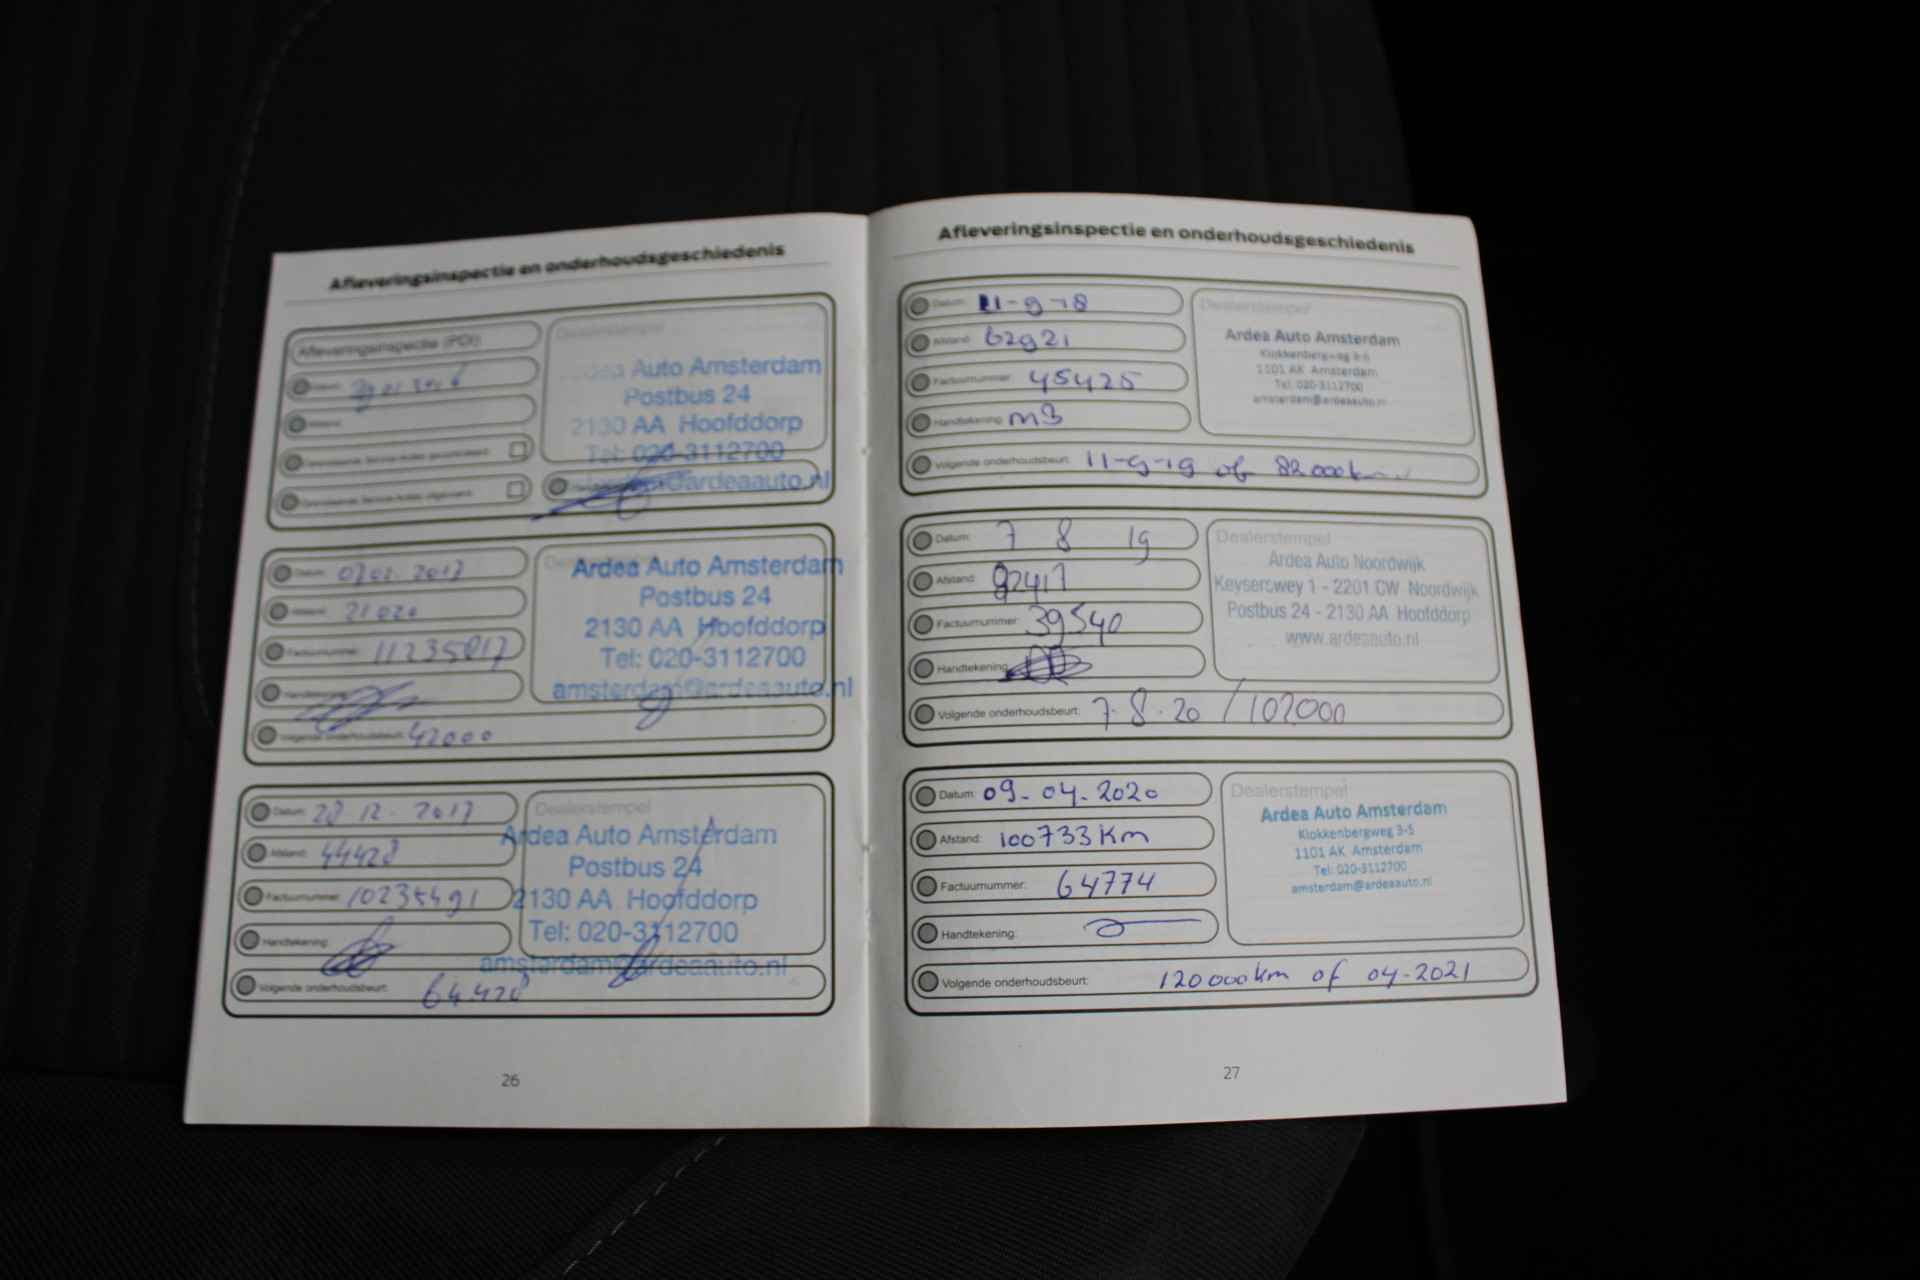 Afleveringsinspectie en onderhoudsgeschiedenis
Afleveringsinspectie (PDI)
Dealerstempel
Auto Amsterdam
Postbus 24
2130 AA Hoofddorp
Tel: 020-3112700
@ardeaauto.nl
Datum: 07.02.2017
21020
Factuurnummer: 11235017
Handtekening:
Volgende onderhoudsbeurt: 42000
Ardea Auto Amsterdam
Postbus 24
2130 AA Hoofddorp
Tel: 020-3112700
amsterdam@ardeaauto.nl
Datum: 28 12. 2017
Afstand: 44428
Factuurnummer: 10235491
Handtekening:
Volgende onderhoudsbeurt: 64.428
Dealerstempel
Ardea Auto Amsterdam
Postbus 24
2130 AA Hoofddorp
Tel: 020-3112700
amsterdam@ardeaauto.nl
26
Afleveringsinspectie en onderhoudsgeschiedenis
Datum: 11-9-18
Afstand: 62921
Factuurnummer: 45425
Handtekening: MB
Volgende onderhoudsbeurt: 11-9-19 of 82.000km
Dealerstempel
Ardea Auto Amsterdam
Klokkenbergweg 3-5
1101 AK Amsterdam
Tel: 020-3112700
amsterdam@ardeaauto.nl
Datum: 7 8 19
Afstand: 82417
Factuurnummer: 39540
Handtekening:
Volgende onderhoudsbeurt: 7.8.20 / 102000
Dealerstempel
Ardea Auto Noordwijk
Keyserswey 1 - 2201 CW Noordwijk
Postbus 24 - 2130 AA Hoofddorp
www.ardeaauto.nl
Datum: 09-04-2020
Afstand: 100733 Km
Factuurnummer: 64774
Handtekening:
Volgende onderhoudsbeurt: 120000km of 04-2021
Dealerstempel
Ardea Auto Amsterdam
Klokkenbergweg 3-5
1101 AK Amsterdam
Tel: 020-3112700
amsterdam@ardeaauto.nl
27